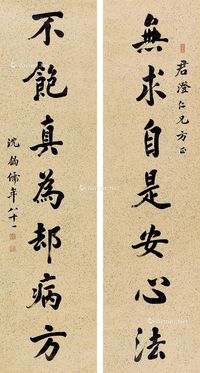 君澄仁兄方正
無求自是安心法
不飽真為却病方
沈鈞儒年八十一